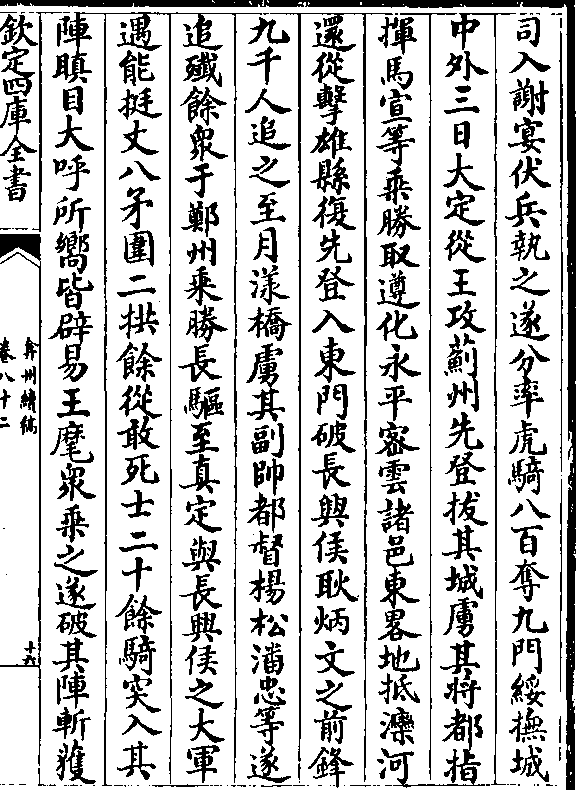 司入謝宴伏兵執之遂分率虎騎八百奪九門綏撫城
中外三日大定從王攻薊州先登拔其城虜其将都指
揮馬宣等乘勝取遵化永平宻雲諸邑東畧地抵灤河
還從擊雄縣復先登入東門破長興侯耿炳文之前鋒
九千人追之至月漾橋虜其副帥都督楊松潘忠等遂
追殲餘衆于鄭州乘勝長驅至真定與長興侯之大軍
遇能挺丈八矛圍二拱餘從敢死士二十餘騎突入其
陣瞋目大呼所嚮皆辟易王麾衆乘之遂破其陣斬獲
欽定四庫全書
弇州續稿
卷八十二
十六